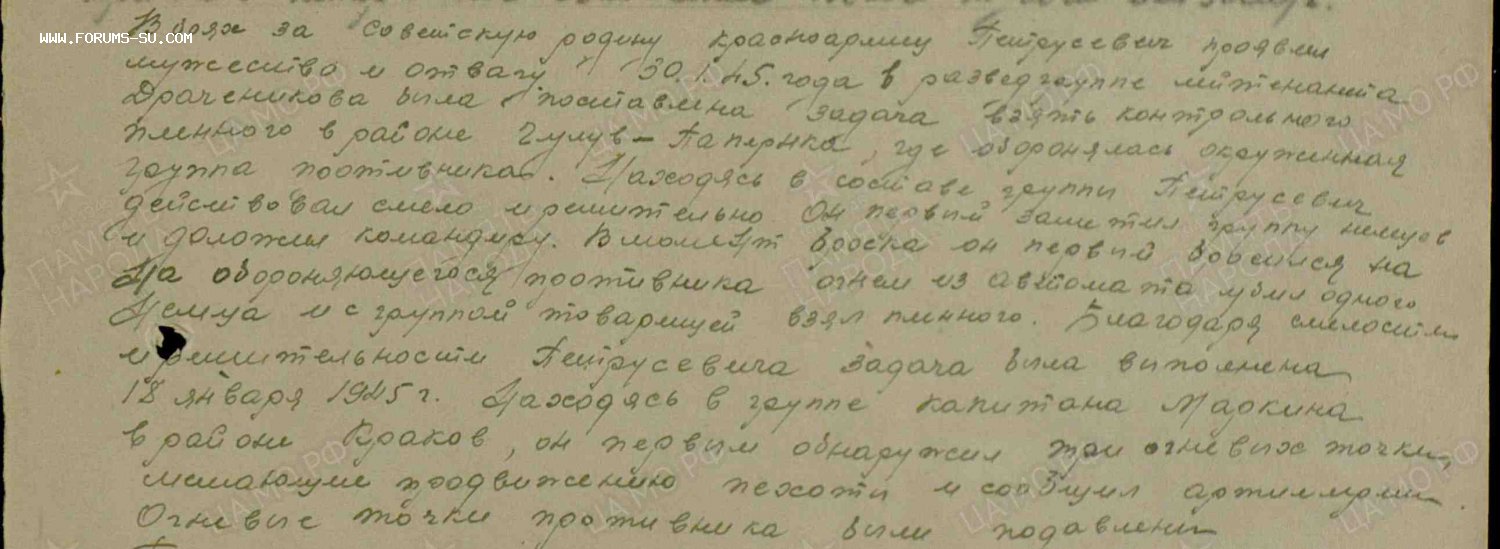 WWW.FORUMS-SU.COM
В боях за советскую родину красноармеец Петрусевич проявил
мужество и отвагу 30.1.45. года в разведгруппе лейтенанта
Драченикова была поставлена задача взять контрольного
пленного в районе Гулув-Папержка, где оборонялась окруженная
группа противника. Находясь в составе группы Петрусевич
действовал смело и решительно. Он первый заметил группу немцев
и доложил командиру. В момент броска он первый бросился на
на обороняющегося противника огнем из автомата убил одного
немца и с группой товарищей взял пленного. Благодаря смелости
и решительности Петрусевича задача была выполнена
18 января 1945 г. Находясь в группе капитана Маркина
в районе Краков, он первым обнаружил три огневых точки,
мешающие продвижению пехоты и сообщил артиллерии
Огневые точки противника были подавлены